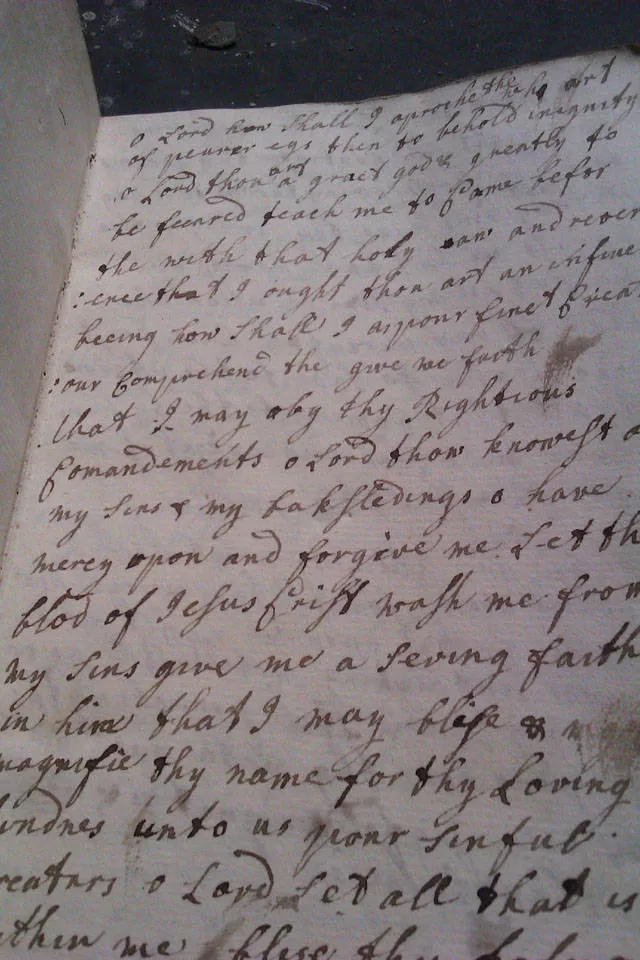 o Lord how Shall I aproche the who art
of peurer eys then to behold inignity
o Lord thou art a graet god & greatly to
be feeared teach me to Came befor
the with that holy and rever
:ence that I ought thou art an infine
beeing how Shall I a pour finet Creat
:our Comprehend the give me faith
that I may oby thy Rightious
Comandements o Lord thou knowest a
my Sins & my bakslidings o have
mercy upon and forgive me Let th
blod of Jesus Crist wash me from
my Sins give me a Seving faith
in him that I may blise &
magnifie thy name for thy Loving
kindnes unto us pour Sinful
reaturs o Lord Let all that is
ithin me blise thy